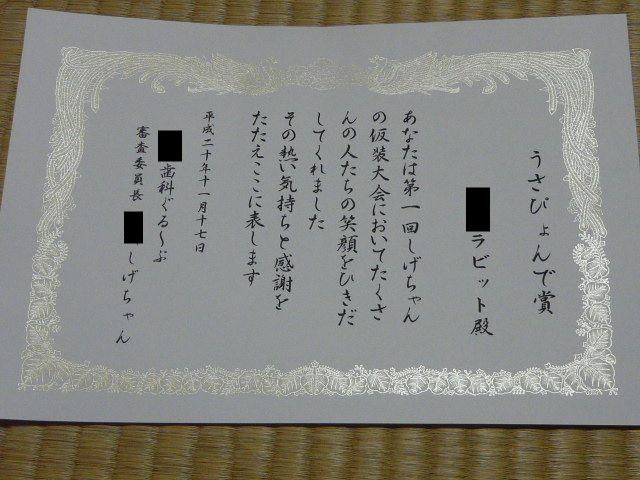 うさぴょんで賞
ラビット殿
あなたは第一回しげちゃん
の仮装大会においてたくさ
んの人たちの笑顔をひきだ
してくれました
その熱い気持ちと感謝を
たたえここに表します
平成二十年十一月十七日
歯科ぐる～ぷ
審査委員長 しげちゃん